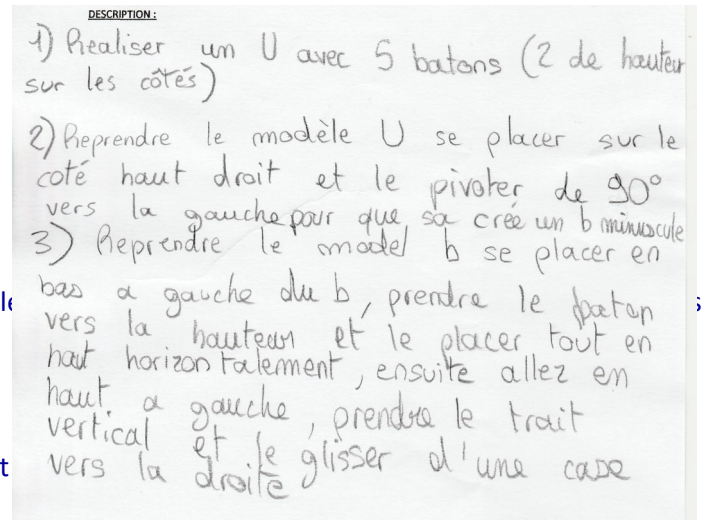 DESCRIPTION :
1) Realiser un U avec 5 batons (2 de hauteur
sur les côtés)
2) Reprendre le modèle U se placer sur le
coté haut droit et le pivoter de 90°
vers la gauche pour que sa crée un b minuscule
3) Reprendre le model b se placer en
bas a gauche du b, prendre le baton
vers la hauteur et le placer tout en
haut horizontalement, ensuite allez en
haut a gauche, prendre le trait
vertical et le glisser d'une case
vers la droite